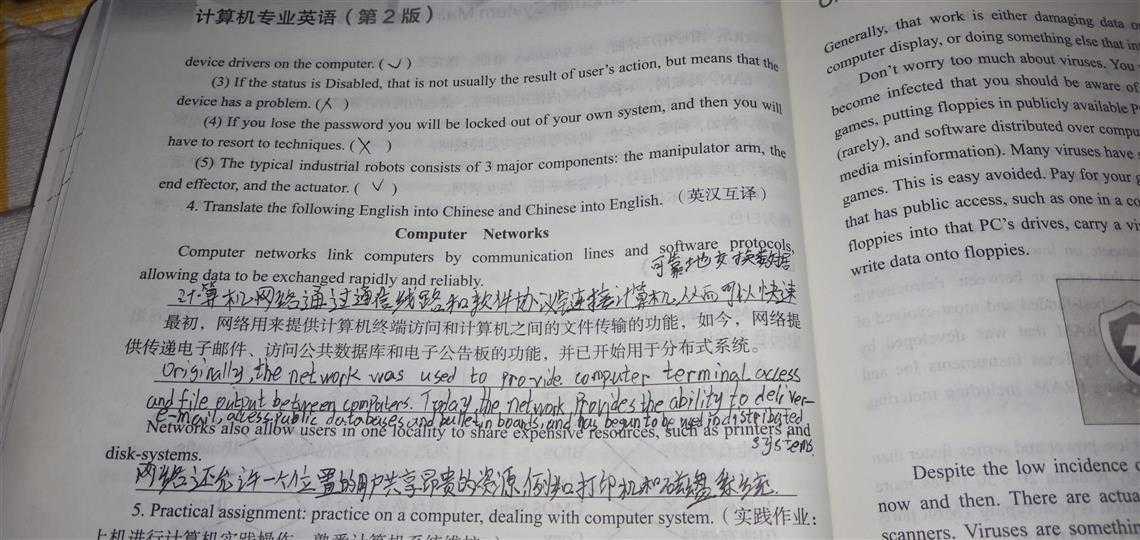 计算机专业英语（第2版）
device drivers on the computer. ( ✓ )
(3) If the status is Disabled, that is not usually the result of user's action, but means that the
device has a problem. ( )
(4) If you lose the password you will be locked out of your own system, and then you will
have to resort to techniques. ( X )
(5) The typical industrial robots consists of 3 major components: the manipulator arm, the
end effector, and the actuator. ( ✓ )
4. Translate the following English into Chinese and Chinese into English. （英汉互译）
Computer Networks
Computer networks link computers by communication lines and software protocols,
可靠地交换数据
allowing data to be exchanged rapidly and reliably.
计算机网络通过通信线路和软件协议连接计算机,从而可以快速
最初，网络用来提供计算机终端访问和计算机之间的文件传输的功能，如今，网络提
供传递电子邮件、访问公共数据库和电子公告板的功能，并已开始用于分布式系统。
Originally, the network was used to provide computer terminal access
and file output between computers. Today, the network provides the ability to deliver
e-mail, access public databases and bulletin boards, and has begun to be used in distributed
systems.
Networks also allow users in one locality to share expensive resources, such as printers and
disk-systems.
网络还允许一个位置的用户共享昂贵的资源,例如打印机和磁盘系统.
5. Practical assignment: practice on a computer, dealing with computer system.（实践作业：
上机进行计算机实践操作，熟悉计算机系统维护。）
Generally, that work is either damaging data
computer display, or doing something else that
Don't worry too much about viruses. You
become infected that you should be aware of
games, putting floppies in publicly available
(rarely), and software distributed over
media misinformation). Many viruses have
games. This is easy avoided. Pay for your
that has public access, such as one in a
floppies into that PC's drives, carry a
write data onto floppies.
Despite the low incidence
now and then. There are
scanners. Viruses are